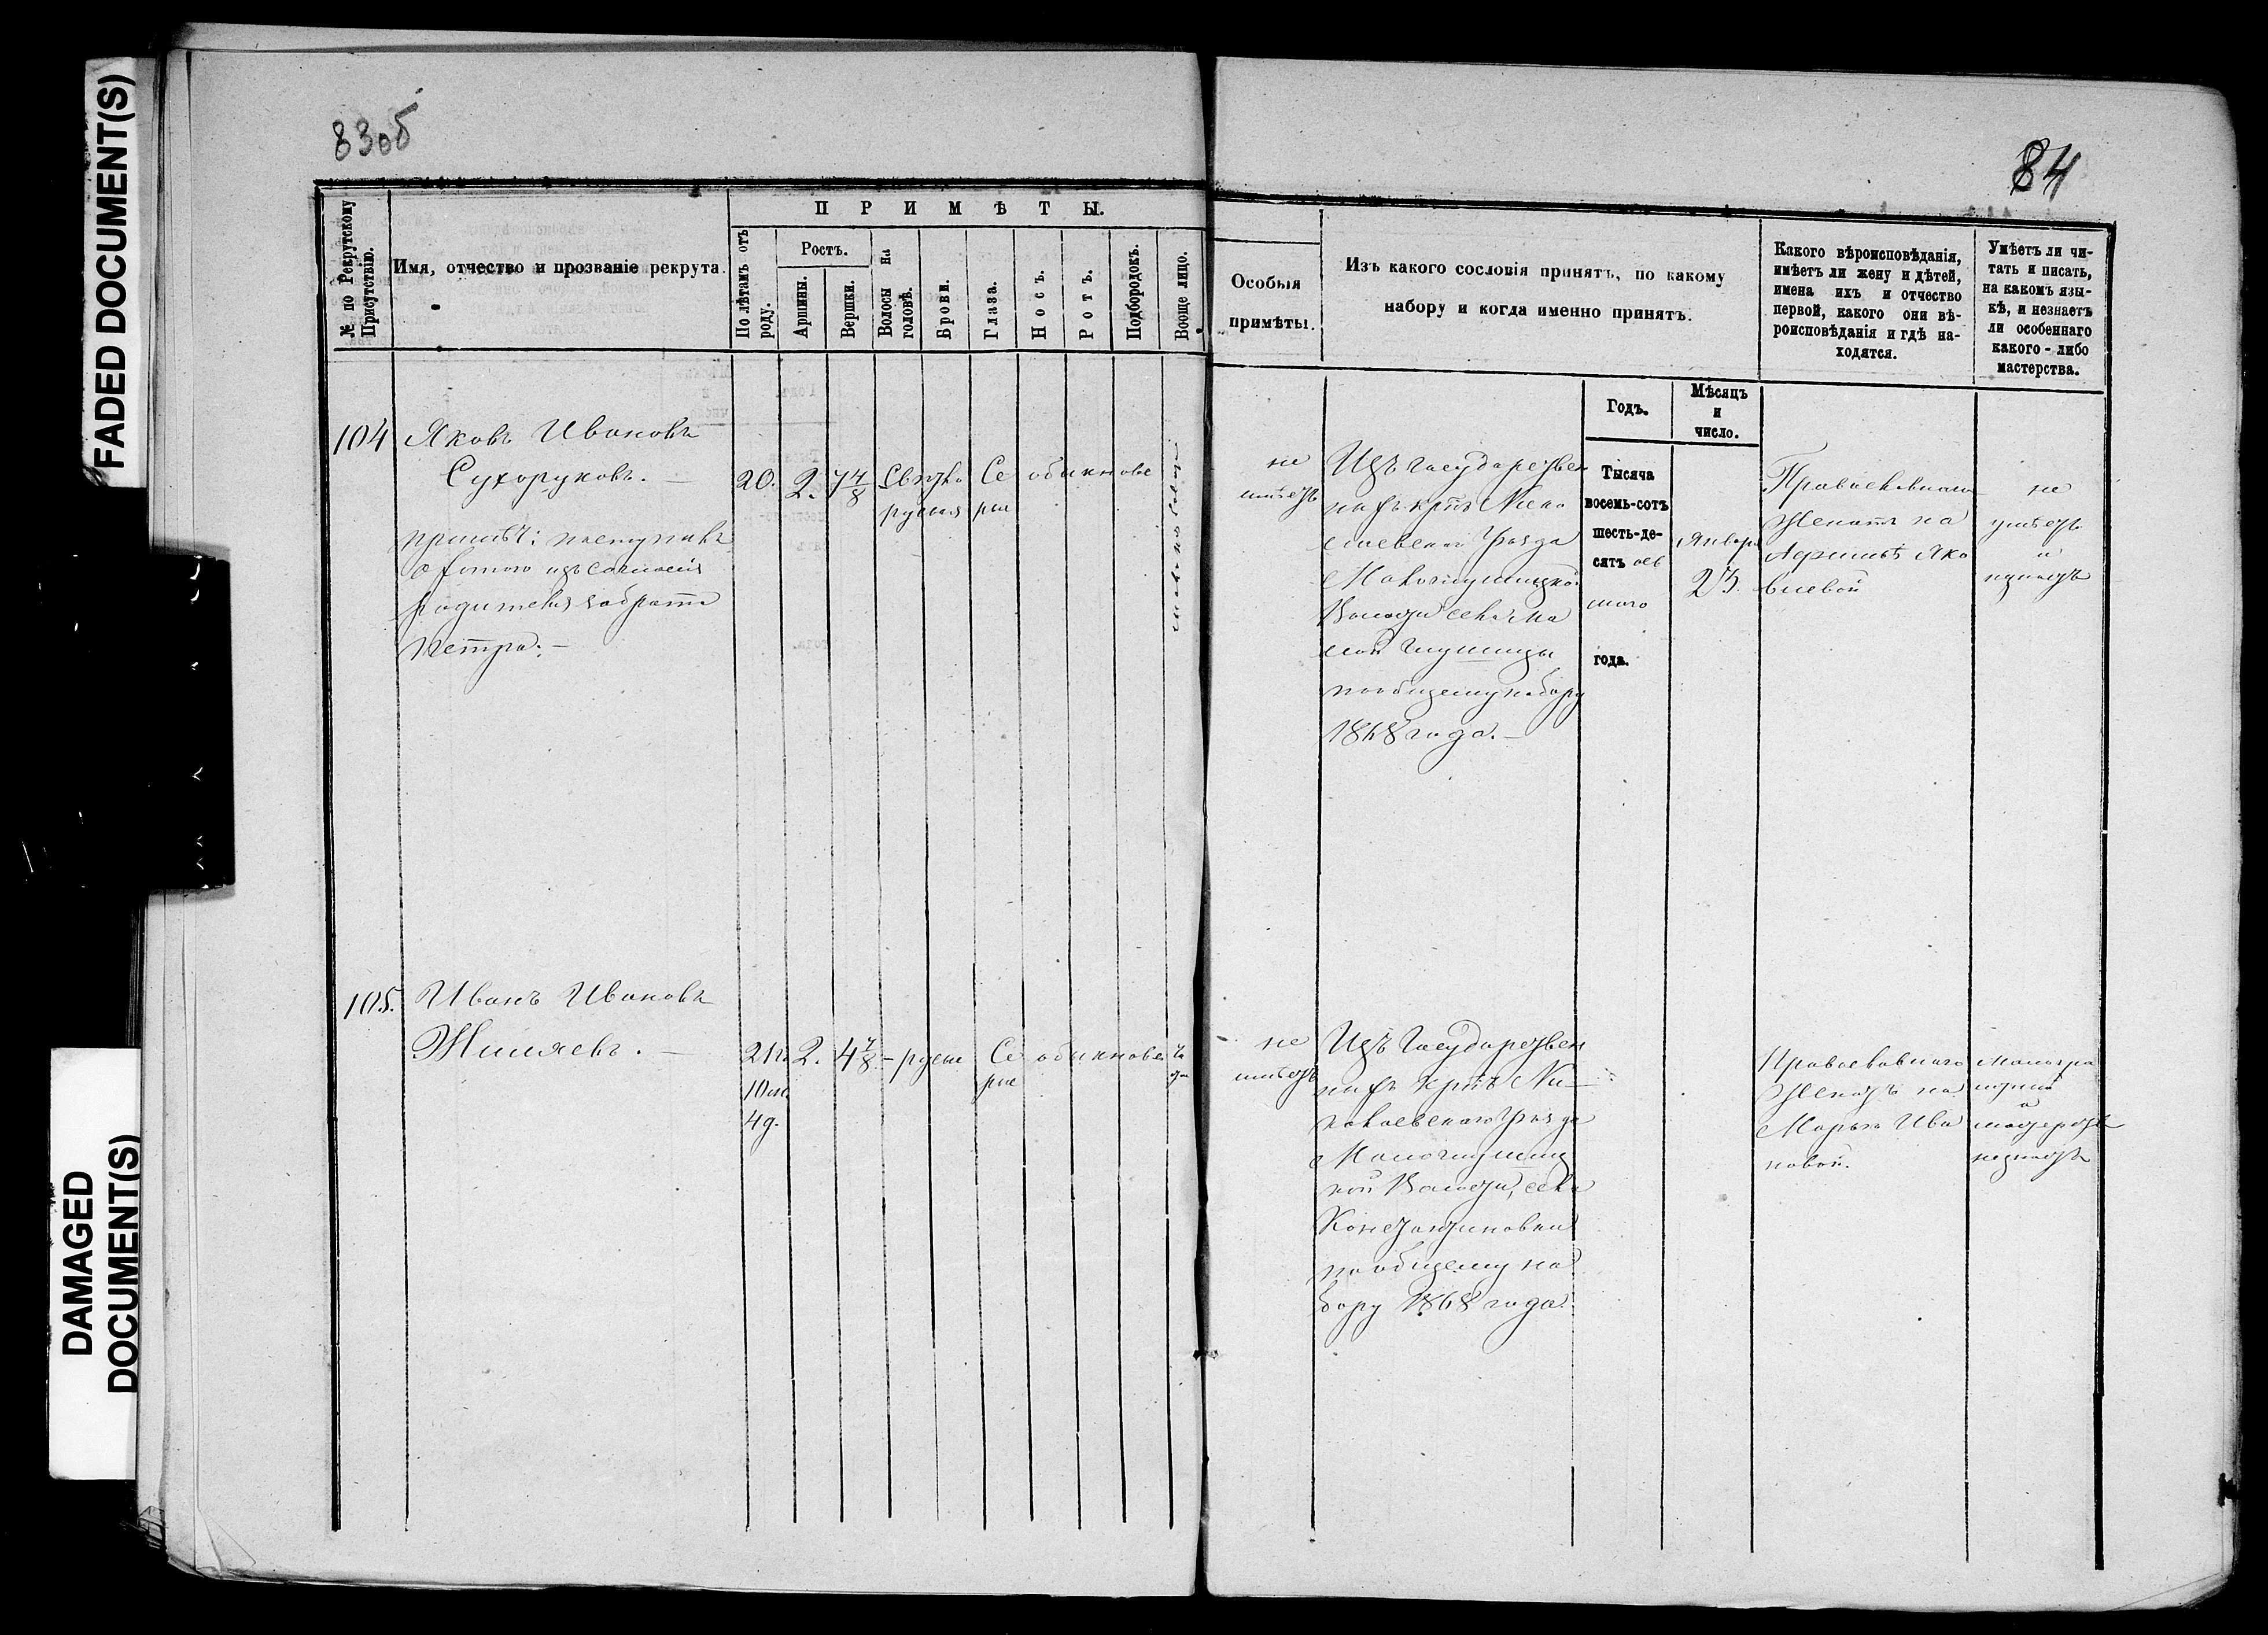 FADED DOCUMENT(S)
DAMAGED
DOCUMENT(S)
83об
84
№ по Рекрутскому
Присутствію.
Имя, отчество и прозваніе рекрута.
ПРИМѢТЫ.
По лѣтамъ отъ
роду.
Ростъ.
Аршины.
Вершки.
Волосы на
головѣ.
Брови.
Глаза.
Носъ.
Ротъ.
Подбородокъ.
Вооще лицо.
Особыя
примѣты.
Изъ какого сословія принятъ, по какому
набору и когда именно принятъ.
Какого вѣроисповѣданія,
имѣетъ ли жену и дѣтей,
имена ихъ и отчество
первой, какого они вѣ-
роисповѣданія и гдѣ на-
ходятся.
Умѣетъ ли чи-
тать и писать,
на какомъ язы-
кѣ, и незнаетъ
ли особеннаго
какого-либо
мастерства.
Годъ.
Мѣсяцъ
и
число.
104
Яковъ Ивановъ
Сухоруковъ. —
примѣч: поступилъ
охотою изъ согласія
родителя за брата
Петра. —
20.
2.
7 4/8
Свѣтло
русыя
Се
рые
обыкнове
не
имѣетъ
Изъ государствен
ныхъ крнъ Нико
лаевского Уѣзда
Малоглушицкой
Волости села Ма
лой Глушицы
по общему набору
1868 года. —
Тысяча
восемь-сотъ
шесть-де-
сятъ вось
маго
года.
Января
23.
Православнаго
Женатъ на
Афимьѣ Яко
влевой
не
умѣетъ
и
незнаетъ
105.
Иванъ Ивановъ
Жиляевъ. —
21 г.
10 м.
4 д.
2.
4 7/8
— русые
Се
рые
обыкновен
не
имѣетъ
Изъ Государствен
ныхъ крнъ Ни—
колаевского Уѣзда
Малоглушиц
кой Волости, села
Константиновки
по общему на
бору 1868 года.
Православнаго
Женатъ на
Марьѣ Ива
новой.
малогра
мотный
а
мастерства
незнаетъ